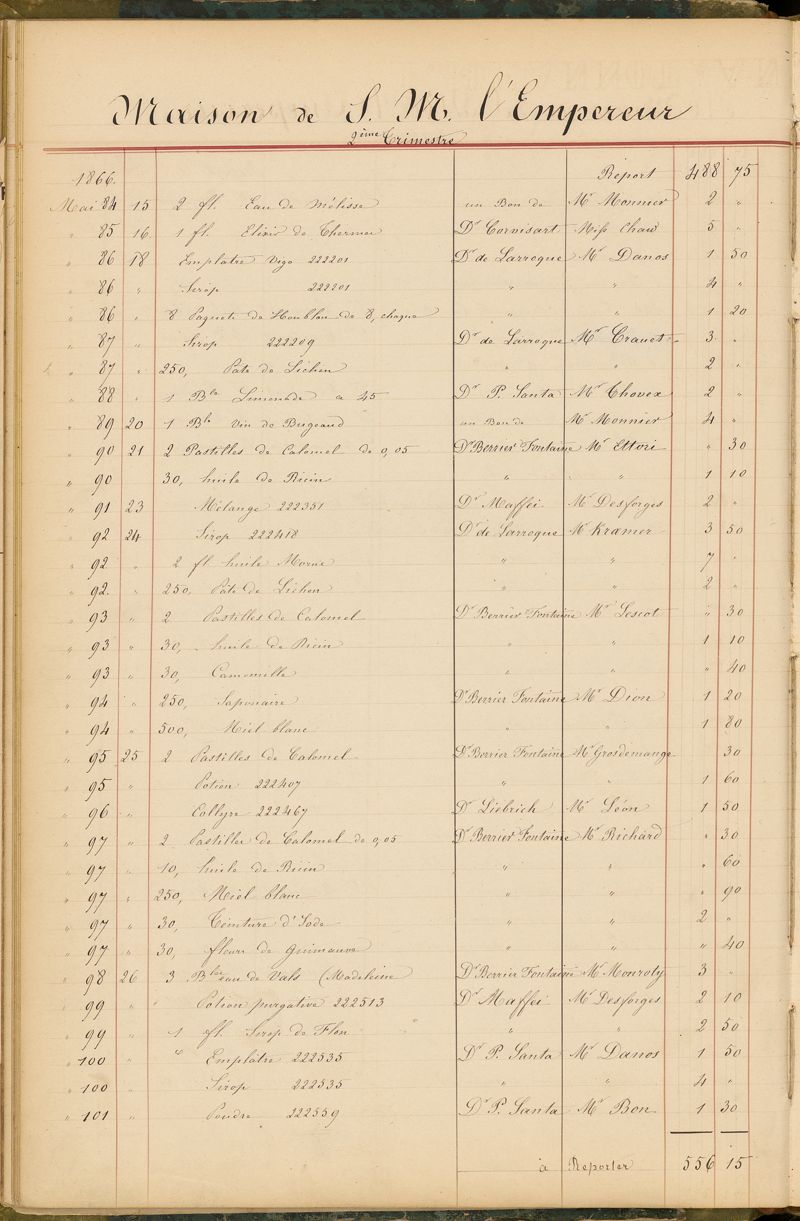 Maison de S. M. l'Empereur
2ème Trimestre
1866. Report 488 75
Mai 84 15 2 fl. Eau de Mélisse un Bon de Mr Monnier 2 "
" 85 16. 1 fl. Elixir de Thermer Dr Corvisart Miss Chaw 5 "
" 86 18 Emplatre Vigo 222201 Dr de Larroque Mr Danos 1 50
" 86 " Sirop 222201 " " 4 "
" 86 " 8 Paquets de Houblon de 8, chaque " " 1 20
" 87 " Sirop 222209 Dr de Larroque Mr Crauet 3 "
" 87 " 250, Pâte de Lichen " " 2 "
" 88 " 1 Blle Limonade a 45 Dr P. Santa Mr Chovex 2 "
" 89 20 1 Blle Vin de Bugeaud un Bon de Mr Monnier 4 "
" 90 21 2 Pastilles de Calomel de 0,05 Dr Berrier Fontaine Mr Ettori " 30
" 90 30, huile de Ricin " " 1 10
" 91 23 Mélange 222351 Dr Maffei Mr Desforges 2 "
" 92 24 Sirop 222418 Dr de Larroque Mr Kramer 3 50
" 92 " 2 fl huile Morue " " 7 "
" 92. " 250, Pâte de Lichen " " 2 "
" 93 " 2 Pastilles de Calomel Dr Berrier Fontaine Mr Lescot " 30
" 93 " 30, huile de Ricin " " 1 10
" 93 " 30, Camomille " " " 40
" 94 " 250, Saponaire Dr Berrier Fontaine Mr Dion 1 20
" 94 " 500, Miel blanc " " 1 80
" 95 25 2 Pastilles de Calomel Dr Berrier Fontaine Mr Grosdemange 30
" 95 " Potion 222407 " " 1 60
" 96 " Collyre 222467 Dr Liebrich Mr Léon 1 50
" 97 " 2 Pastilles de Calomel de 0,05 Dr Berrier Fontaine Mr Richard " 30
" 97 " 10, huile de Ricin " " " 60
" 97 " 250, Miel blanc " " " 90
" 97 " 30, Teinture d'Iode " " 2 "
" 97 " 30, fleurs de guimauve " " " 40
" 98 26 3 Blles eau de Vals (Madeleine Dr Berrier Fontaine Mr Monroty 3 "
" 99 " Potion purgative 222513 Dr Maffei Mr Desforges 2 10
" 99 " 1 fl. Sirop de Flon " " 2 50
" 100 " Emplâtre 222535 Dr P. Santa Mr Danos 1 50
" 100 " Sirop 222535 " " 4 "
" 101 " Poudre 222559 Dr P. Santa Mr Bon 1 30
à Reporter 556 15